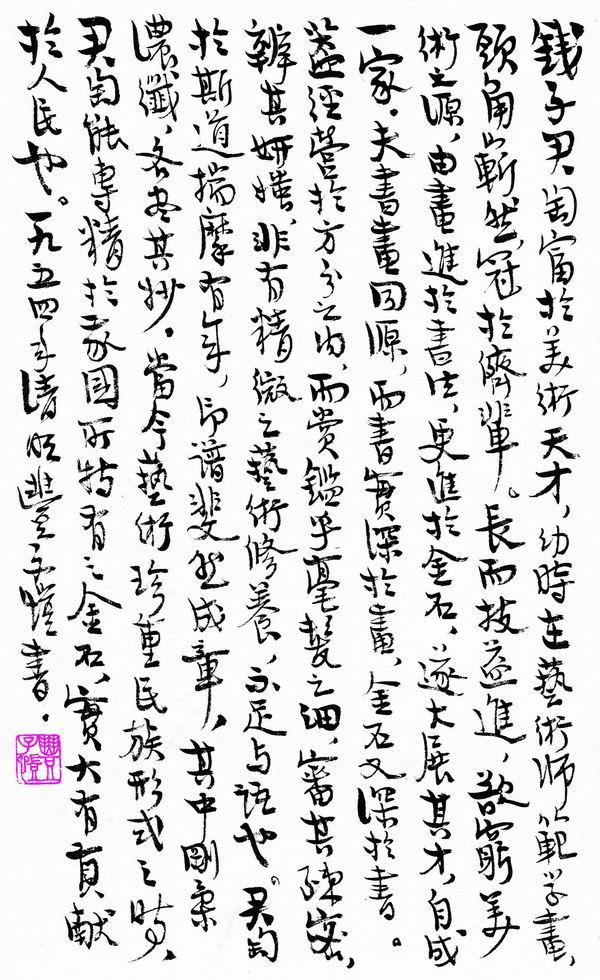 錢子君匋富於美術天才，幼時在藝術師範學畫，
頭角嶄然，冠於儕輩。長而技益進，欲窮美
術之源，由畫進於書法，更進於金石，遂大展其才，自成
一家。夫書畫同源，而書實深於畫，金石又深於書。
蓋經營於方寸之內，而賞鑑乎毫髮之細，審其疎密，
辨其妍媸，非有精微之藝術修養，不足与語也。君匋
於斯道揣摩有年，印譜斐然成章，其中剛柔
濃纖，各盡其妙。當今藝術珍重民族形式之時，
君匋能專精於我國所特有之金石，實大有貢獻
於人民也。一九五四年清明豐子愷書。
豐子愷